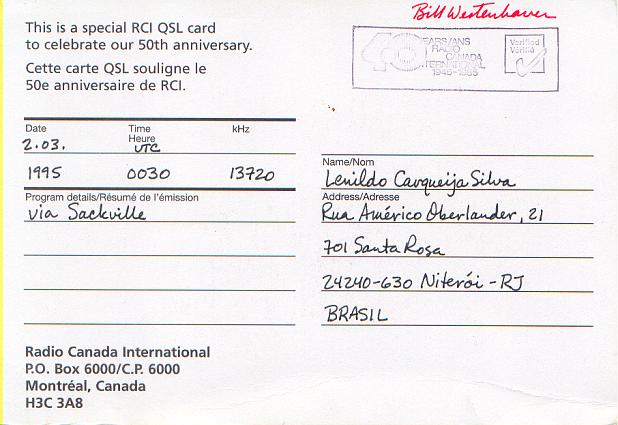 Bill Westenhaver
This is a special RCI QSL card
to celebrate our 50th anniversary.
Cette carte QSL souligne le
50e anniversaire de RCI.
40 YEARS/ANS
RADIO
CANADA
INTERNATIONAL
1945-1985
Verified
Vérifié
Date Time kHz
Heure
2.03. UTC
1995 0030 13720
Program details/Résumé de l'émission
via Sackville
Name/Nom
Lenildo Carqueija Silva
Address/Adresse
Rua Américo Oberlander, 21
701 Santa Rosa
24240-630 Niterói - RJ
BRASIL
Radio Canada International
P.O. Box 6000/C.P. 6000
Montréal, Canada
H3C 3A8